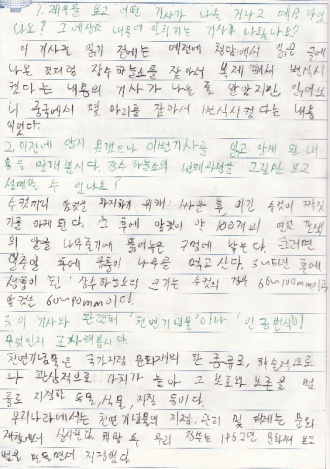 1. 제목을 보고 어떤 기사가 나올 거라고 예상 하였
나요? 그 예상과 내용이 일치하는 기사가 나왔나요?
이 기사를 읽기 전에는 예전에 책에서 읽은 글에
나온 것처럼 장수하늘소를 잡아서 복제해서 번식시
켰다는 내용의 기사가 나올 줄 알았지만, 읽어보
니 중국에서 몇 마리를 잡아서 번식시켰다는 내용
이었다.
2. 이전에 알지 못했으나 이번기사를 읽고 알게 된 내
용을 말해봅시다. 장수 하늘소의 번데기과정을 그림만 보고
설명할 수 있나요?
수컷끼리 암컷을 차지하기 위해 싸운 후, 이긴 수컷이 짝짓
기를 하게 된다. 그 후에 암컷이 약 100개의 연교 갈색
의 알을 나무줄기에 뚫어놓은 구멍에 낳는다. 그러면
일주일 후에 유충이 나무를 먹고 산다. 3~5년 후에
성충이 된 장수하늘소의 크기는 수컷의 경우 60~100mm이고
암컷은 60~90mm이다.
3. 이 기사와 관련하여 '천연기념물'이나 '인공번식'이
무엇인지 조사해봅시다.
천연기념물은 국가지정 문화재의 한 종류로, 학술적으로
나 관상적으로 가치가 높아 그 보호와 보존을 법
률로 지정한 동물, 식물, 지질 등이다.
우리나라에서는 천연기념물의 지정, 관리 및 해제는 문화
재청에서 실시한다. 해방 후 우리 정부는 1962년 문화재 보호
법을 만들면서 지정했다.